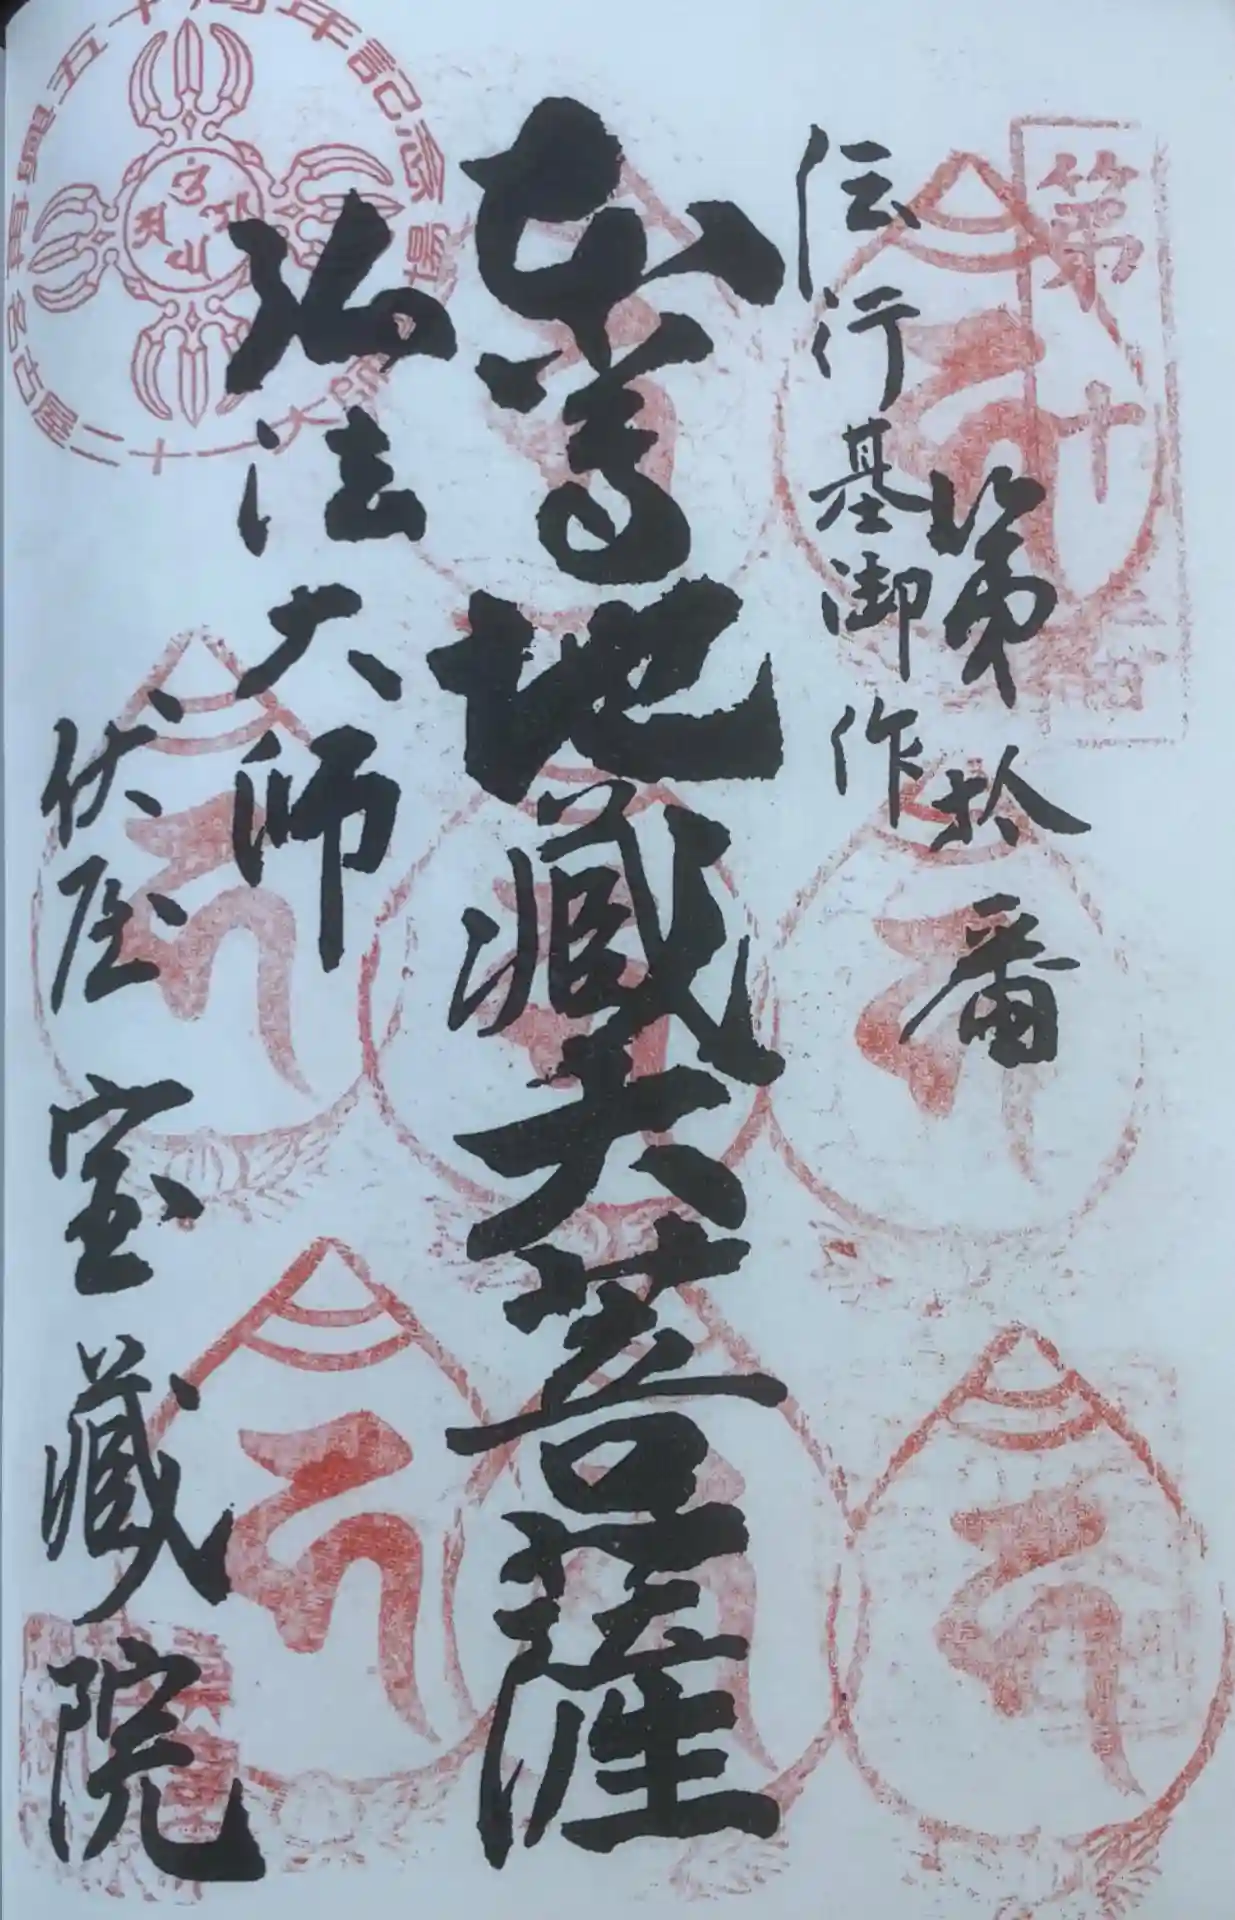 第十
第拾番
伝行基御作
本尊地蔵大菩薩
弘法大師
伏屋 宝蔵院
五十周年記念
名古屋二十一大師